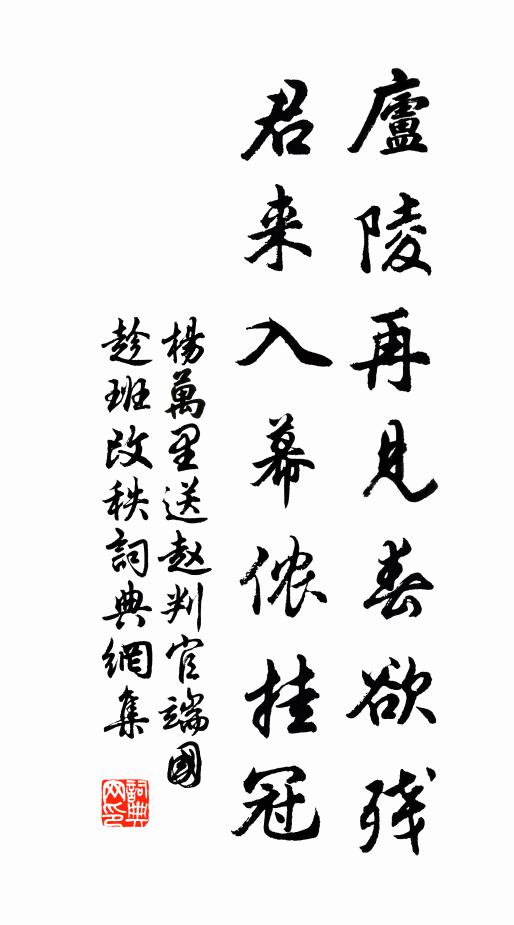 廬陵再見春欲残
君来入幕侬挂冠
楊萬里送赵判官端國
趁班改秩詞典網集
詞典
网印